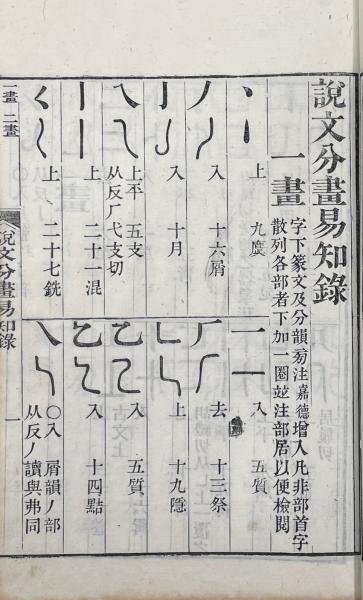 說文分畫易知錄
一畫
字下篆文及分韻旁注嘉德增入凡非部首字
散列各部者下加一圈竝注部居以便檢閱
丶 上 九麌
丿 入 十六屑
亅 入 十月
乁 上平 五支
从反厂弋支切
丨 上 二十一混
〈 上 二十七銑
一 入 五質
厂 去 十三祭
乚 上 十九隱
乙 入 五質
入 十四黠
乀 ○入 屑韻丿部
从反丿讀與弗同
一畫 二畫
說文分畫易知錄
一